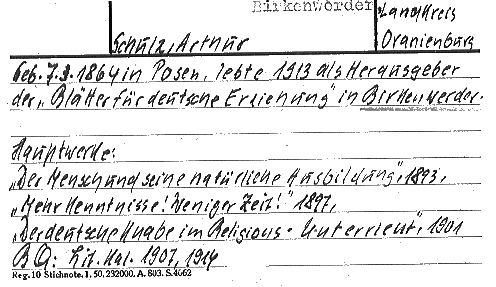 Birkenwerder
Landkreis
Oranienburg
Schulz, Artur
Geb. 7.9.1864 in Posen, lebte 1913 als Herausgeber
der „Blätter für deutsche Erziehung" in Birkenwerder.
Hauptwerke:
„Der Mensch und seine natürliche Ausbildung", 1893,
„Mehr Kenntnisse! Weniger Zeit!" 1897,
„Der deutsche Knabe im Religions-Unterricht", 1901
BQ: Lit. Kal. 1907, 1914
Reg. 10 Stichnote. 1, 50, 232000. A. 803. S. 4662